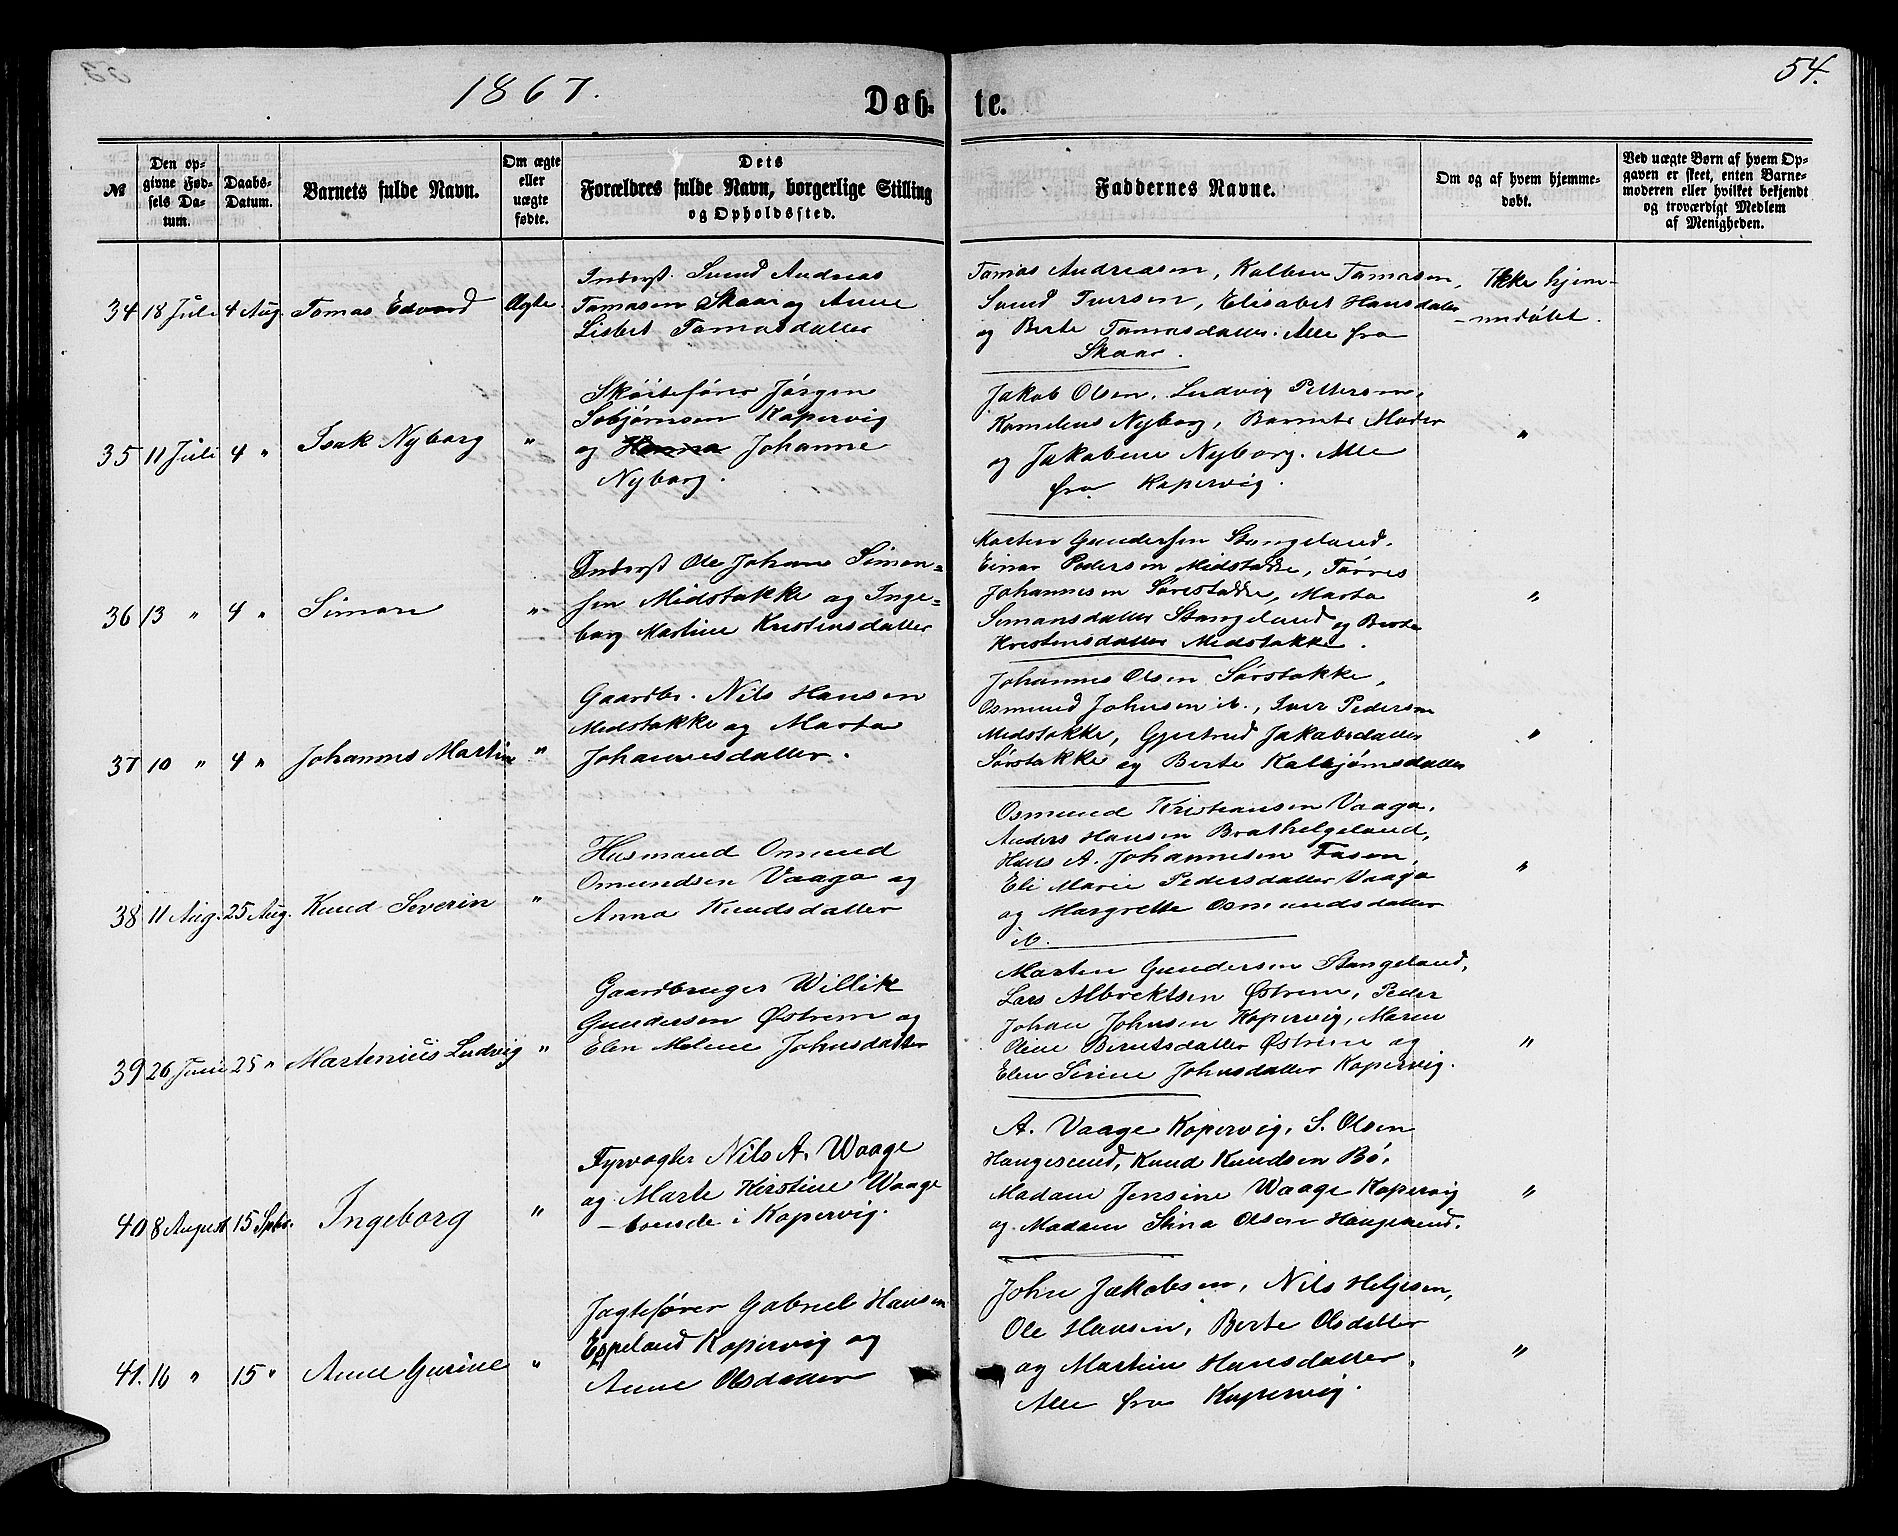 1867.
Døb-
te.
54.
№
Den op-
givne Fød-
sels Da-
tum.
Daabs-
Datum.
Barnets fulde Navn.
Om ægte
eller
uægte
fødte.
Dets
Forældres fulde Navn, borgerlige Stilling
og Opholdssted.
Faddernes Navne.
Om og af hvem hjemme-
døbt.
Ved uægte Børn af hvem Op-
gaven er skeet, enten Barne-
moderen eller hvilket bekjendt
og troværdigt Medlem
af Menigheden.
34 18 Juli 4 Aug. Tomas Edvard Ægte.
Inderst. Svend Andreas
Tomasen Skaar og Anne
Lisbet Tomasdatter
Tomas Andreasen, Kolben Tomasen,
Svend Iversen, Elisabet Hansdatter
og Berte Tomasdatter. Alle fra
Skaar.
Ikke hjem-
-medøbt.
35 11 Juli 4 " Isak Nyborg "
Skøitefører Jørgen
Kopervig
og Hanna Johanne
Nyborg.
Jakob Olsen, Ludvig Pettersen,
Kornelius Nyborg, Barnets Moder
og Jakobine Nyborg. Alle
fra Kopervig.
"
36 13 " 4 " Simon "
Inderst Ole Johan Simon-
sen Midstokke og Inge-
borg Martine Kristensdatter
Morten Gundersen Stangeland,
Einar Pedersen Midstokke, Tørres
Johannesen Sørstokke, Marta
Simonsdatter Stangeland og Berta
Kristensdatter Midstokke.
"
37 10 " 4 " Johannes Martin "
Gaardbr. Nils Hansen
Midstokke og Marta
Johannesdatter.
Johannes Olsen Sørstokke,
Osmund Johnsen ib., Iver Pedersen
Midstokke, Gjertrud Jakobsdatter
Sørstokke og Berte Kolbjørnsdatter
"
38 11 Aug. 25 Aug. Knud Severin "
Husmand Omund
Omundsen Vaaga og
Anna Knudsdatter
Osmund Kristiansen Vaaga,
Anders Hansen Brathelgeland,
Hans A. Johannesen Fosen,
Eli Marie Pedersdatter Vaaga
og Margrette Osmundsdatter
ib.
"
39 26 Juni 25 " Martenius Ludvig "
Gaardbruger Willik
Gundersen Østrem og
Elen Malene Johnsdatter
Morten Gundersen Stangeland,
Lars Albrektsen Østrem, Peder
Johan Johnsen Kopervig, Maren
Oline Berntsdatter Østrem og
Elen Serine Johnsdatter Kopervig.
"
40 8 August 15 Spbr. Ingeborg "
Fyrvogter Nils A. Waage
og Marte Kirstine Waage
-boende i Kopervig.
A. Vaage Kopervig, S. Olsen
Haugesund, Knud Knudsen Bø,
Madam Jensine Waage Kopervig
og Madam Stina Olsen Haugesund.
"
41. 16 " 15 " Anne Gurine "
Jagtefører Gabriel Hansen
Eppeland Kopervig og
Anne Olsdatter
John Jakobsen, Nils Helgesen,
Ole Hansen, Berte Olsdatter
og Martin Hansdatter,
Alle fra Kopervig.
"